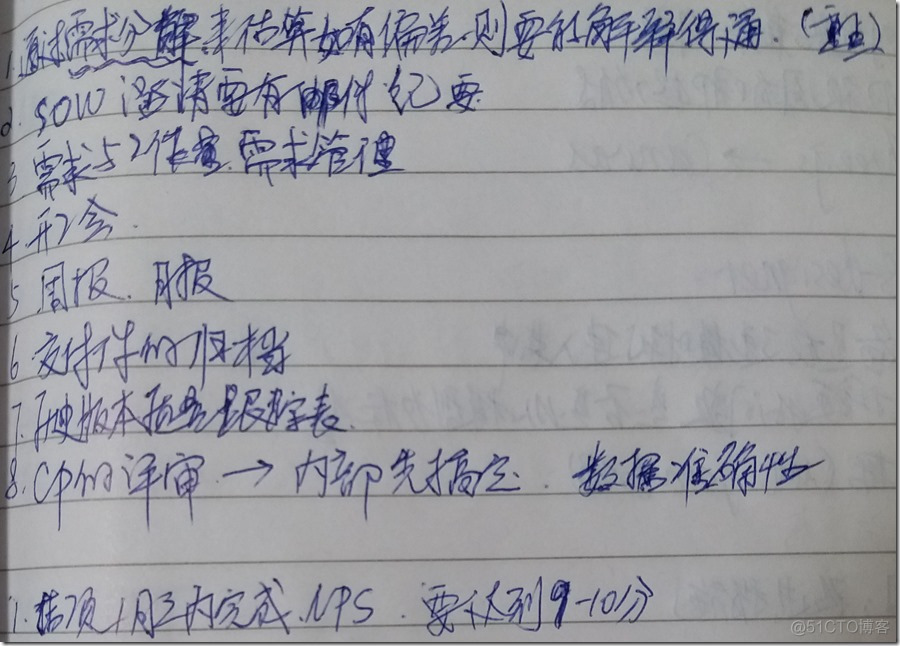 1. 通过需求分解来估算如有偏差,则要能解释得通.(重点)
2. SOW 澄清要有邮件纪要
3 需求与工作量.需求管理
4. 开工会.
5 周报.月报
6 交付件的归档
7. 版本质量跟踪表.
8. CP的评审 → 内部先搞定. 数据准确性
1. 结项1月内完成.NPS.要达到9-10分
@51CTO博客